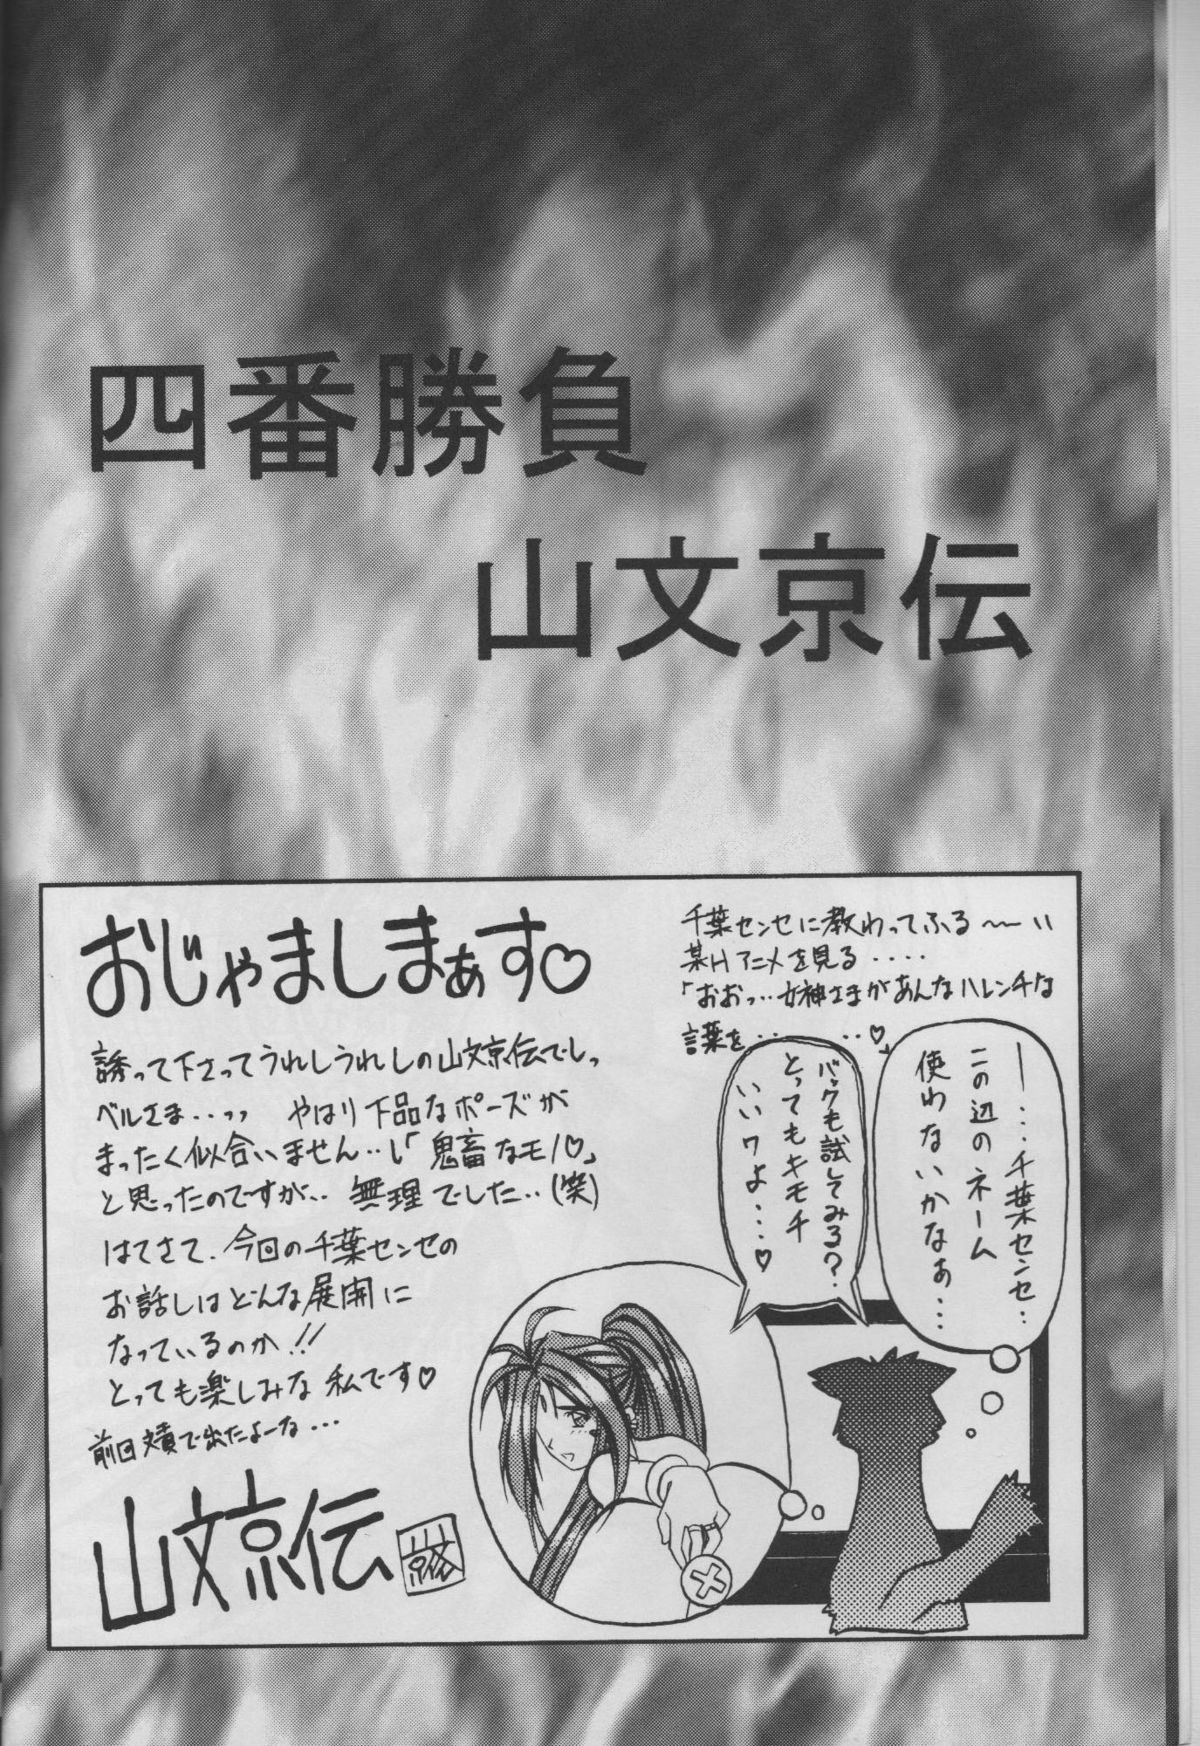 四番勝負
山文京伝
おじゃましまぁす♡
誘って下さってうれしうれしの山文京伝でしっ
ベルさま・・ッッ やはり下品なポーズが
まったく似合いません・・し「鬼畜なモノ♡」
と思ったのですが・・無理でした・・(笑)
はてさて、今回の千葉センセの
お話しはどんな展開に
なっているのか!!
とっても楽しみな私です♡
前回文責で出たよーな・・・
山文京伝
千葉センセに教わってふる〜〜い
某Hアニメを見る・・・・
「おおっ・・・女神さまがあんなハレンチな
言葉を・・・・・・♡」
ー・・・千葉センセ・・
この辺のネーム
使わないかなぁ・・・
バックも試してみる?・・
とってもキモチ
いいワよ・・・♡